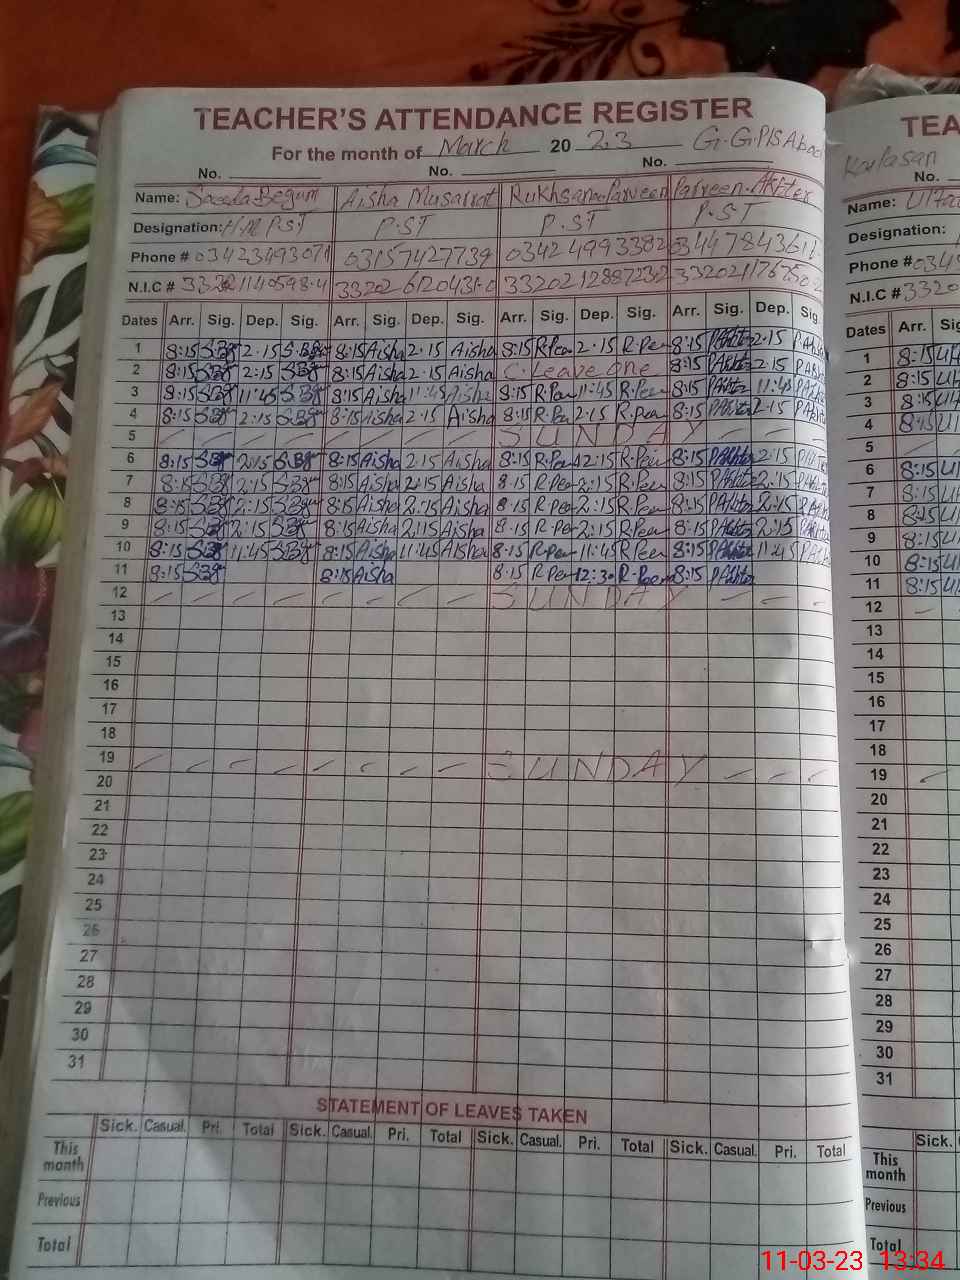 TEACHER'S ATTENDANCE REGISTER
For the month of March 20 23 G.G.P/S Abad
No. No. No.
Name: Saeeda Begum Aisha Musarrat Rukhsana Parveen Parveen Akhter
Designation: H.M P.S.T P.S.T P.S.T P.S.T
Phone # 03423493071 03157427739 03424993382 0344784361
N.I.C # 33202 6120431-0
Dates Arr. Sig. Dep. Sig. Arr. Sig. Dep. Sig. Arr. Sig. Dep. Sig. Arr. Sig. Dep. Sig.
1 8:15 SBg 2.15 S.Bg 8:15 Aisha 2.15 Aisha 8:15 R.Per 2.15 R.Per 8:15 PAkhter 2.15
2 8:15 SBg 2:15 SBg 8:15 Aisha 2.15 Aisha C. Leave One 8:15 PAkhter 2:15
3 8:15 SBg 11:45 SBg 8:15 Aisha 11:45 Aisha 8:15 R.Per 11:45 R.Per 8:15 PAkhter 11:45
4 8:15 SBg 2:15 SBg 8:15 Aisha 2.15 Aisha 8:15 R.Per 2:15 R.Per 8:15 PAkhter 2.15
5 SUNDAY
6 8:15 SBg 2:15 SBg 8:15 Aisha 2:15 Aisha 8:15 R.Per 2:15 R.Per 8:15 PAkhter 2:15
7 8:15 SBg 2:15 SBg 8:15 Aisha 2:15 Aisha 8.15 R.Per 2:15 R.Per 8:15 PAkhter 2:15
8 8:15 SBg 2:15 SBg 8:15 Aisha 2:15 Aisha 8:15 R.Per 2:15 R.Per 8:15 PAkhter 2:15
9 8:15 SBg 2:15 SBg 8:15 Aisha 2:15 Aisha 8.15 R.Per 2:15 R.Per 8:15 PAkhter 2:15
10 8:15 SBg 11:45 SBg 8:15 Aisha 11:45 Aisha 8:15 R.Per 11:45 R.Per 8:15 PAkhter 11:45
11 8:15 SBg 8:15 Aisha 8:15 R.Per 12:30 R.Per 8:15 PAkhter
12 SUNDAY
13
14
15
16
17
18
19 SUNDAY
20
21
22
23
24
25
26
27
28
29
30
31
STATEMENT OF LEAVES TAKEN
Sick. Casual. Pri. Total Sick. Casual. Pri. Total Sick. Casual. Pri. Total Sick. Casual. Pri. Total
This month
Previous
Total
TEA
Kaulasan
No.
Name:
Designation:
Phone # 034
N.I.C # 3320
Dates Arr. Sig
1 8:15
2 8:15
3 8:15
4 8:15
5
6 8:15
7 8:15
8 8:15
9 8:15
10 8:15
11 8:15
12
13
14
15
16
17
18
19
20
21
22
23
24
25
26
27
28
29
30
31
Sick.
This month
Previous
Total
11-03-23 13:34